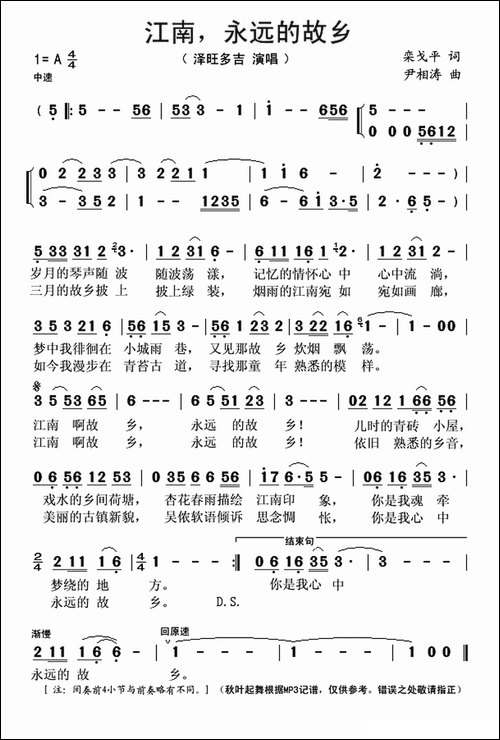 江南，永远的故乡
1=A 4/4
（ 泽旺多吉 演唱 ）
栾戈平 词
中速
尹相涛 曲
( 5 ‖: 5 - - 56 | 553 3 - - | 1 - - 656 | 5 - - -
0 0 0 5612
0 2 23 3 | 3 221 1 | 1 1 6 - | 2 - - - )
3 - 35 2 | 1 - - 1235 | 6 - 61 3·5 | 2 - - 5 )
5 33 31 2 3· | 1 231 6 - | 6 11 161 2· | 5 231 2 - |
岁月的琴声随 波 随波荡 漾， 记忆的情怀心 中 心中流 淌，
三月的故乡披 上 披上绿 装， 烟雨的江南宛 如 宛如画 廊，
3 35 321 6 | 56 15 3 - | 5 6 12 23 | 3 22 16 61 - | 1 - 0 0 |
梦中我徘徊在 小城雨 巷， 又见那故乡 炊烟 飘 荡。
如今我漫步在 青苔古 道， 寻找那童 年 熟悉的模 样。
3 5 53 65 | 5 - - - | 6 5 51 53 | 3 - - - | 02 12 1 66 56 |
江南 啊故 乡， 永远 的故 乡！ 儿时的青砖 小屋，
江南 啊故 乡， 永远 的故 乡！ 依旧 熟悉的乡音，
06 56 12 53 | 035 66 056 | 17 6·5 5 - | 06 16 35 3· |
戏水的乡间荷塘， 杏花春雨描绘 江南印 象， 你是我魂 牵
美丽的古镇新貌， 吴侬软语倾诉 思念惆 怅， 你是我心中
结束句
2/4 2 11 1 6 | 4/4 1 - - - :‖ 06 16 35 3 | 3 - - - |
梦绕的 地 方。 你是我心中
永远的 故 乡。 D.S.
渐慢
回原速
2 11 1 6 6 | 1 - - - | 1 - - - | 1 - - - ‖
永远的 故 乡。
[ 注：间奏前4小节与前奏略有不同。]（秋叶起舞根据MP3记谱，仅供参考。错误之处敬请指正）